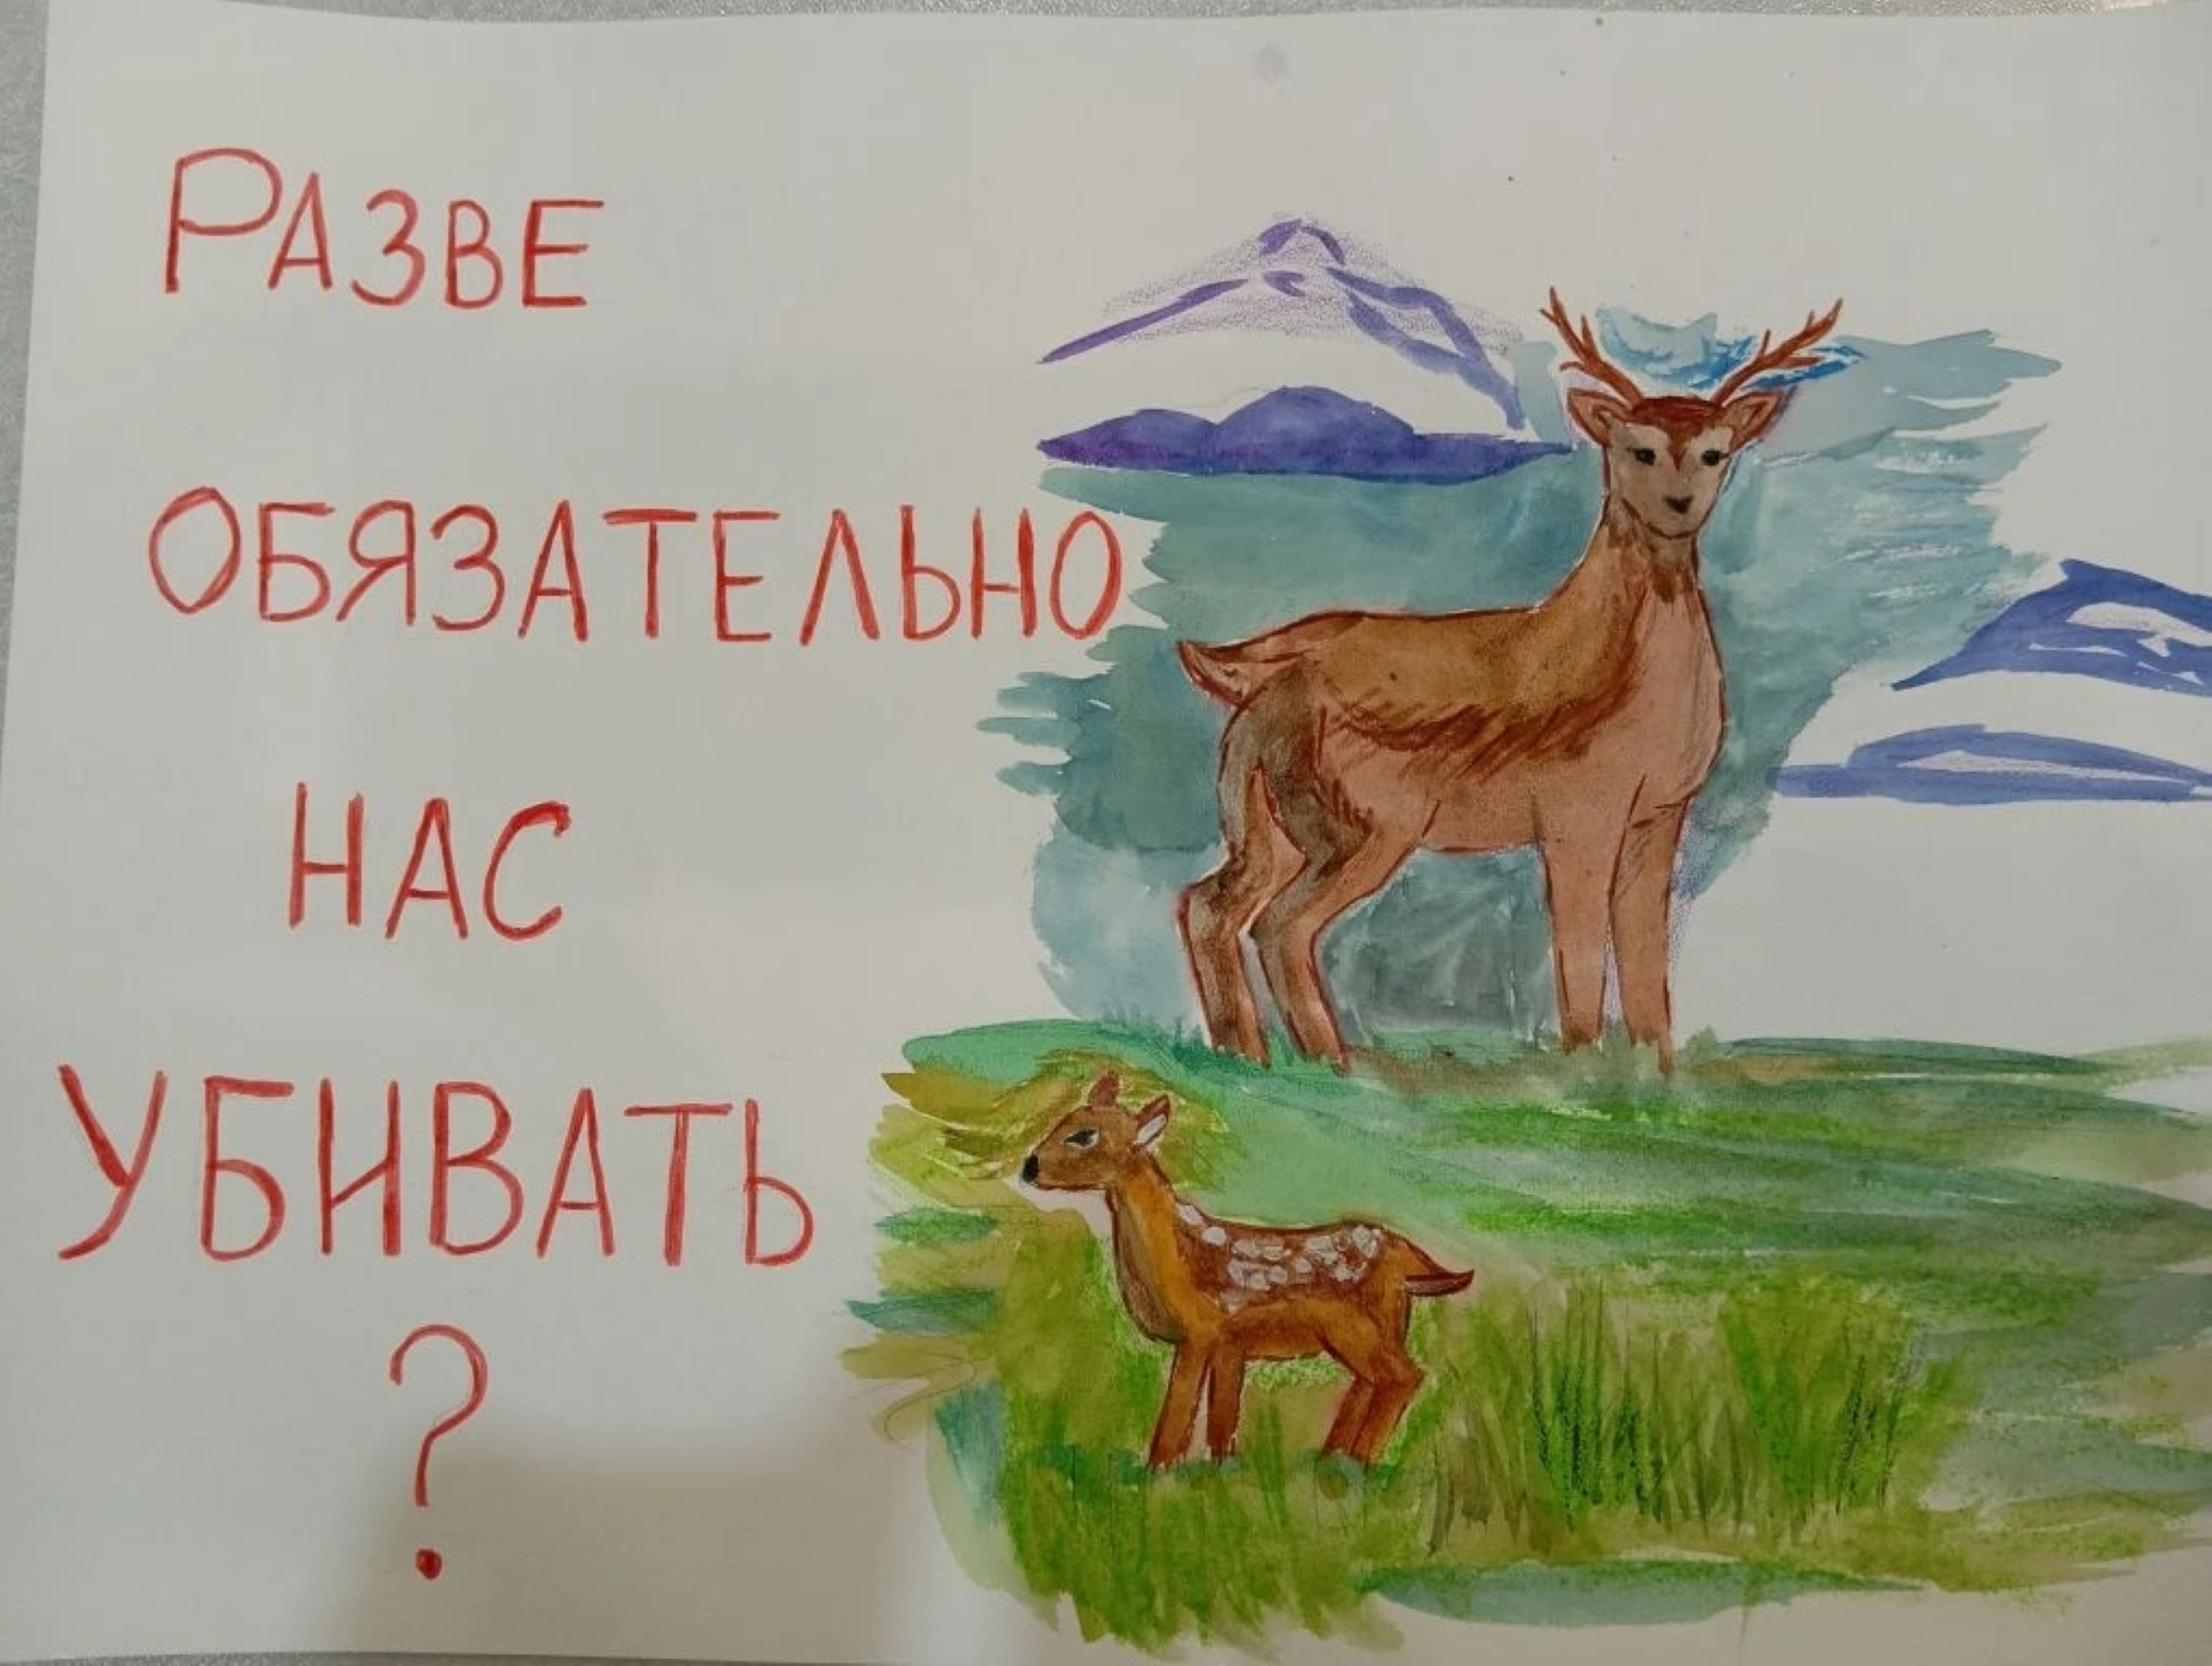 РАЗВЕ
ОБЯЗАТЕЛЬНО
НАС
УБИВАТЬ
?